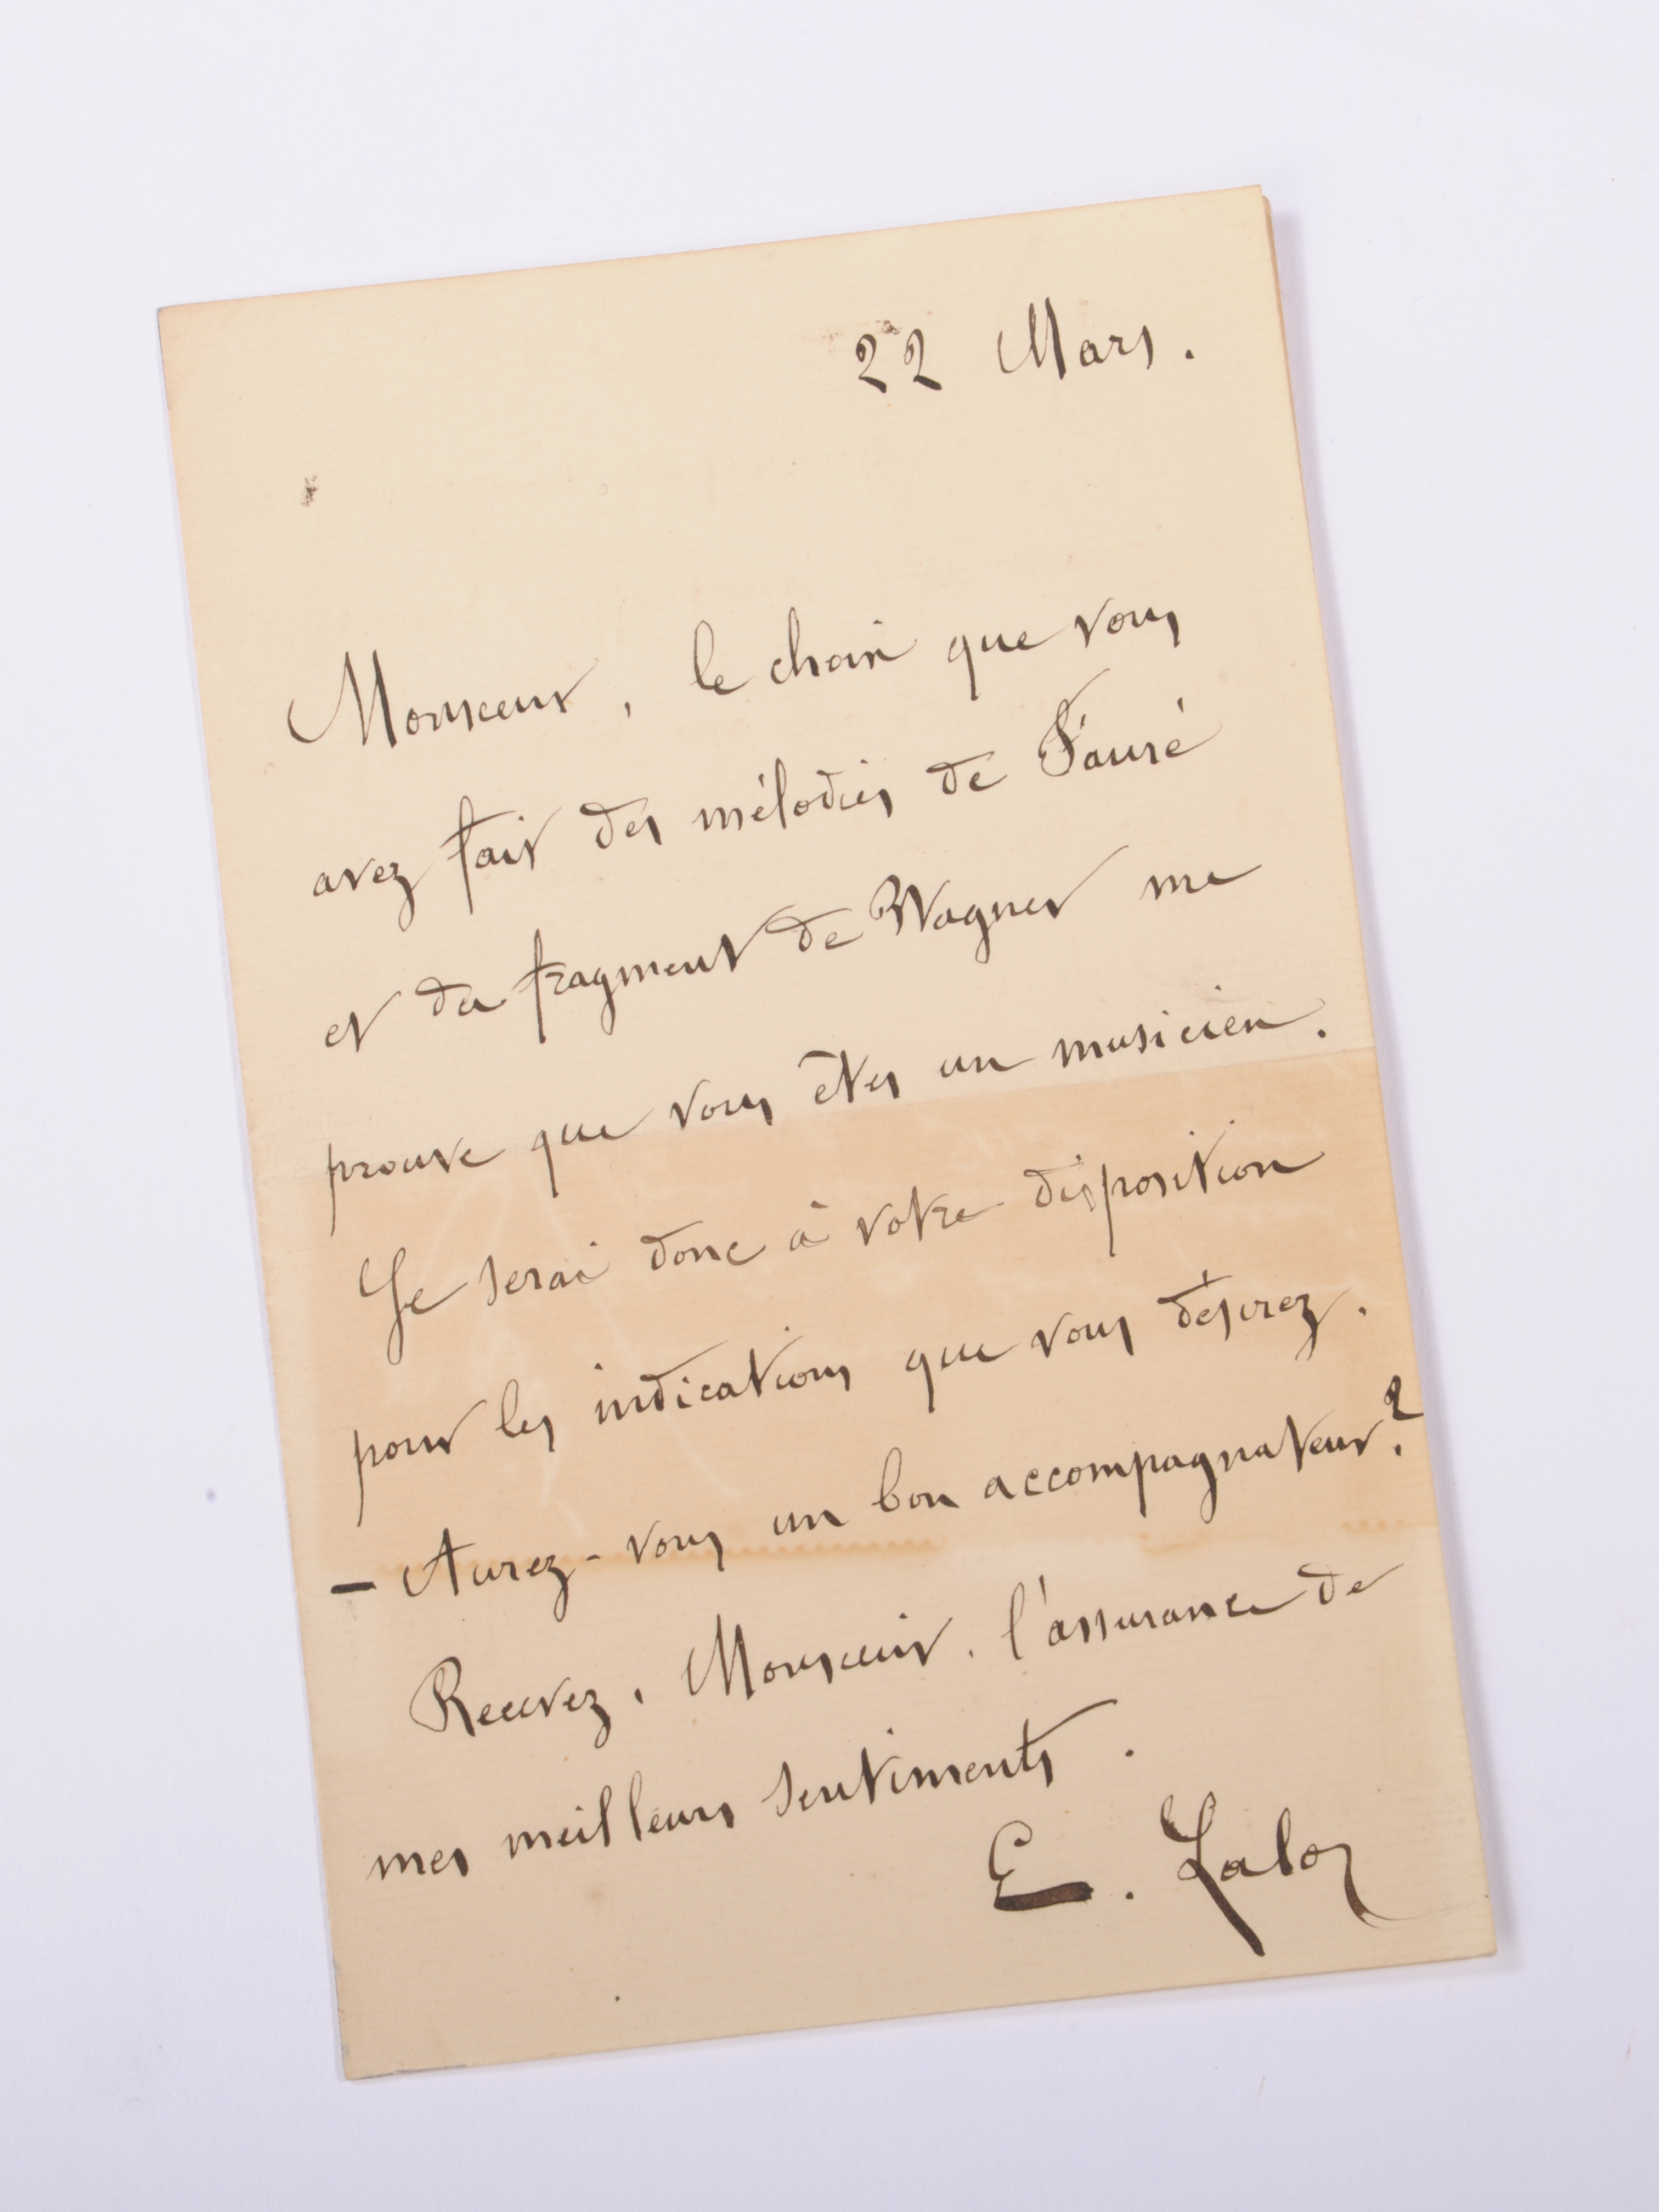 22 Mars.
Monsieur, le choix que vous
avez fait des mélodies de Fauré
et du fragment de Wagner me
prouve que vous êtes un musicien.
Je serai donc à votre disposition
pour les indications que vous désirez.
— Aurez-vous un bon accompagnateur?
Recevez, Monsieur, l'assurance de
mes meilleurs sentiments.
E. Lalo